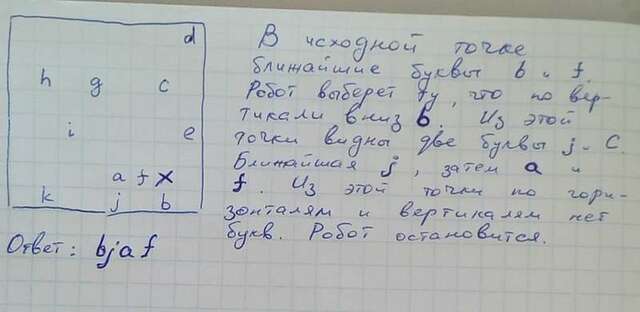 d
h g c
i e
a f X
k j b
Ответ: bjaf
В исходной точке
ближайшие буквы b и f.
Робот выберет ту, что по вер-
тикали вниз b. Из этой
точки видны две буквы j и c.
Ближайшая j, затем a и
f. Из этой точки по гори-
зонталям и вертикалям нет
букв. Робот остановится.